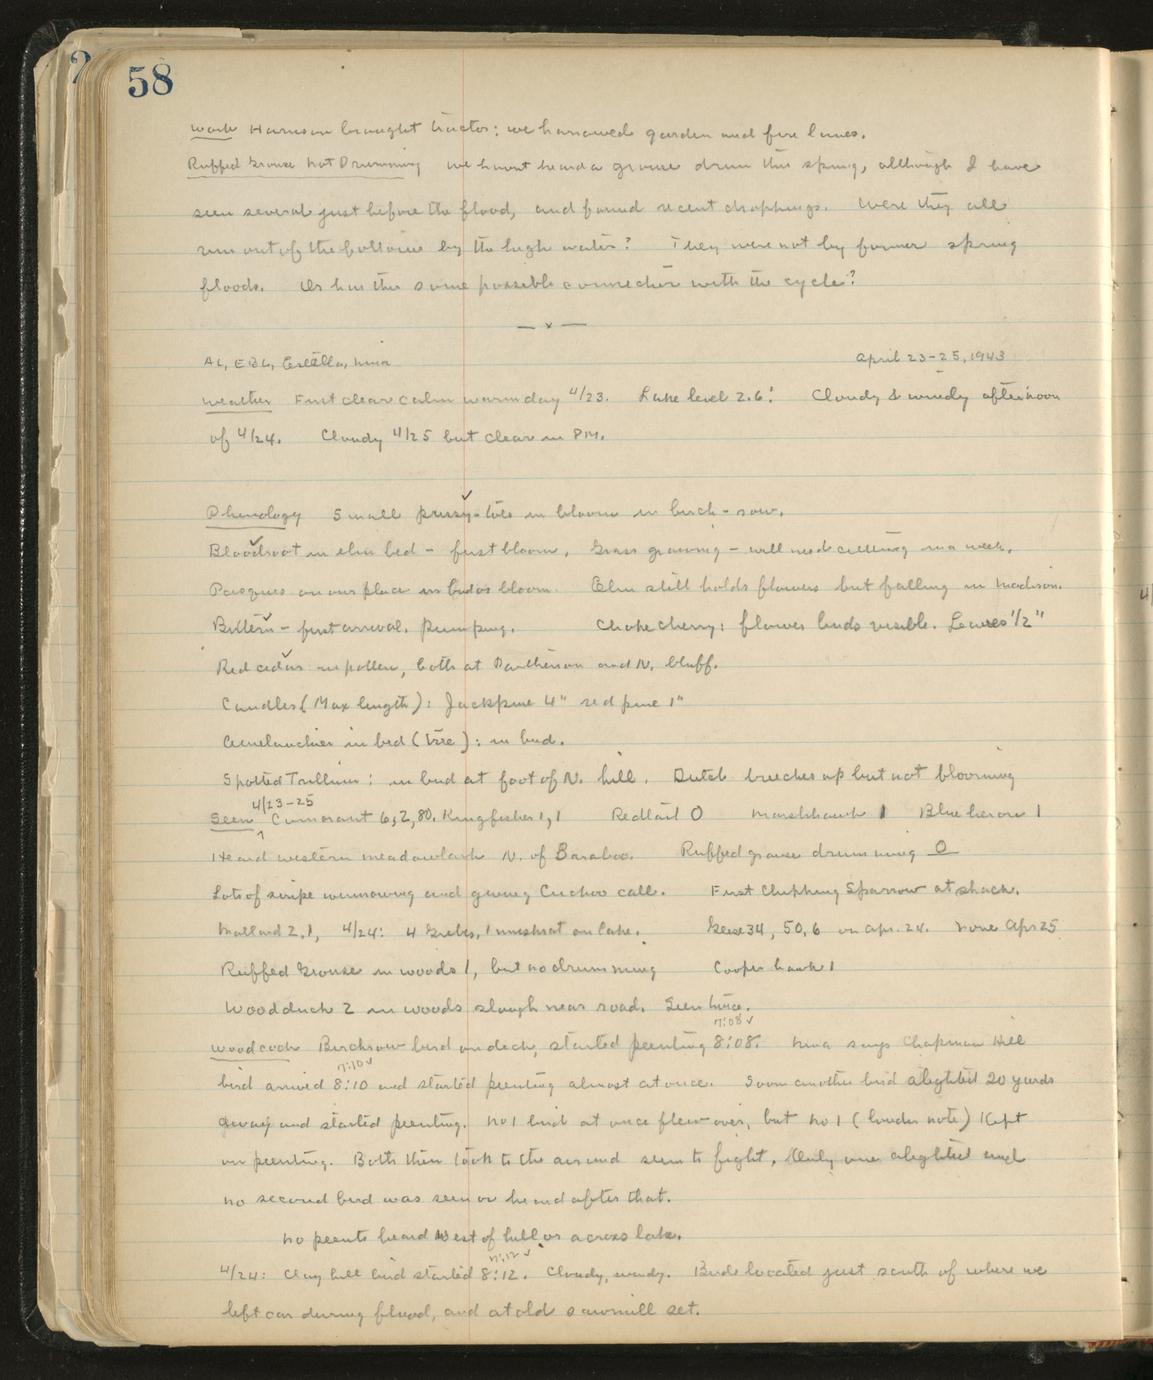 58
Work Harrison brought tractor: we harrowed garden and fire lanes.
Ruffed Grouse Not Drumming we havnt heard a grouse drum this spring, although I have
seen several just before the flood, and found recent droppings. Were they all
run out of the bottoms by the high water? They were not by former spring
floods. Or has this some possible connection with the cycle?
— x —
AL, EBL, Estella, Nina April 23-25, 1943
Weather First clear calm warm day 4/23. Lake level 2.6! Cloudy & windy afternoon
of 4/24. Cloudy 4/25 but clear in PM.
Phenology Small pussy-toes in bloom in birch-row.
Bloodroot in elm bed - first bloom. Grass growing - will need cutting in a week.
Pasques on our place in bud or bloom. Elm still holds flowers but falling in Madison.
Bittern - first arrival, pumping. Choke cherry: flower buds visible. Leaves 1/2"
Red cedar in pollen, both at and N. bluff.
Candles (Max length): Jackpine 4" red pine 1"
Amelanchier in bed (tree): in bud.
Spotted Trillium: in bud at foot of N. hill. Dutch breeches up but not blooming
4/23-25
Seen Cormorant 6, 2, 80. Kingfisher 1, 1 Redtail 0 Marshhawk 1 Blue heron 1
Heard western meadowlark N. of Baraboo. Ruffed grouse drumming 0
Lots of snipe winnowing and giving Cuckoo call. First Chipping Sparrow at shack.
Mallard 2, 1, 4/24: 4 Grebes, 1 muskrat on lake. Geese 34, 50, 6 on Apr. 24. None Apr 25
Ruffed Grouse in woods 1, but no drumming Cooper hawk 1
Woodduck 2 in woods slough near road. Seen twice.
7:08 ✓
Woodcock Birchrow bird on deck, started peenting 8:08. Nina says Chapman Hill
7:10 ✓
bird arrived 8:10 and started peenting almost at once. Soon another bird alighted 20 yards
away and started peenting. No 1 bird at once flew over, but No 1 (louder note) kept
on peenting. Both then took to the air and seem to fight. Only one alighted and
no second bird was seen or heard after that.
No peents heard West of hill or across lake.
7:12 ✓
4/24: Clay hill bird started 8:12. Cloudy, windy. Birds located just south of where we
left car during flood, and at old sawmill set.